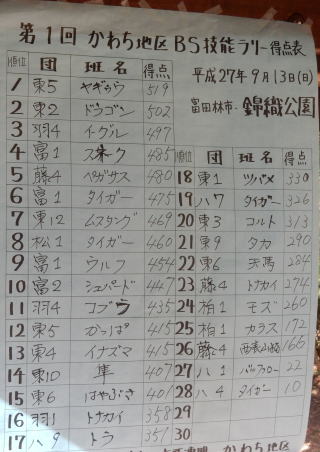 第1回 かわち地区BS技能ラリー得点表
平成27年9月13日(日)
富田林市・錦織公園
順位 団 班名 得点
1 東5 ヤギュウ 519
2 東2 ドラゴン 502
3 羽4 イーグル 497
4 富1 スネーク 485
5 藤4 ペガサス 480
6 富1 タイガー 475
7 東12 ムスタング 469
8 松1 タイガー 460
9 富1 ウルフ 454
10 富2 シェパード 447
11 羽4 コブラ 435
12 東5 かっぱ 415
13 東4 イナズマ 415
14 東10 隼 407
15 東6 はやぶさ 401
16 羽1 トナカイ 358
17 八9 トラ 351
順位 団 班名 得点
18 東1 ツバメ 330
19 八7 タイガー 326
20 東3 コルト 313
21 東9 タカ 290
22 東6 天馬 284
23 藤4 トナカイ 274
24 柏1 モズ 260
25 柏1 カラス 172
26 藤4 西表山猫 166
27 八1 バッファロー 22
28 八4 タイガー 10
29
30
かわち地区